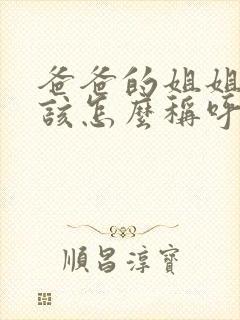 爸爸的姐姐
該怎麼稱呼
順昌淳寶